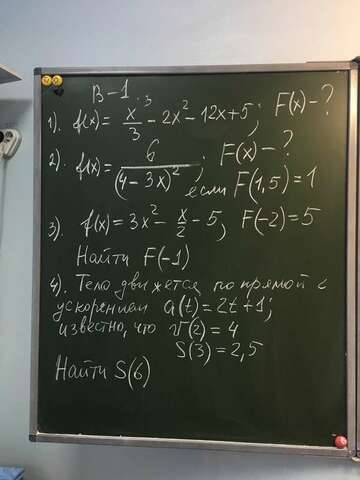 В-1.
1). f(x) = x³/3 - 2x² - 12x + 5; F(x) - ?
2). f(x) = 6/(4 - 3x)²; F(x) - ?
если F(1,5) = 1
3). f(x) = 3x² - x/2 - 5, F(-2) = 5
Найти F(-1)
4). Тело движется по прямой с
ускорением a(t) = 2t + 1;
известно, что v(2) = 4
S(3) = 2,5
Найти S(6)